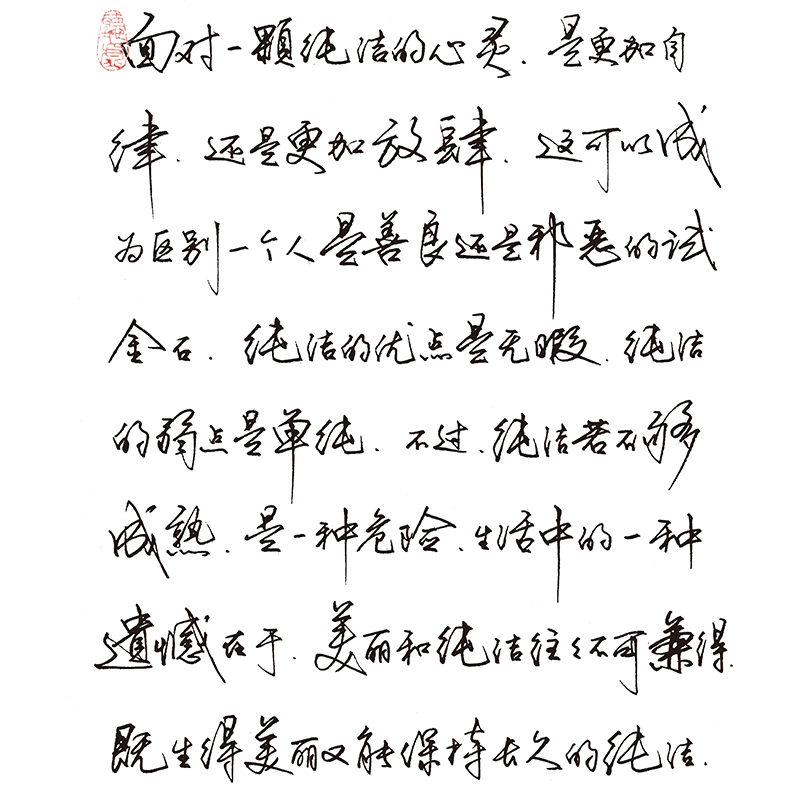 面对一颗纯洁的心灵．是更加自
律．还是更加放肆．这可以成
为区别一个人是善良还是邪恶的试
金石．纯洁的优点是无暇．纯洁
的弱点是单纯．不过．纯洁若不够
成熟．是一种危险．生活中的一种
遗憾在于．美丽和纯洁往往不可兼得．
既生得美丽又能保持长久的纯洁．